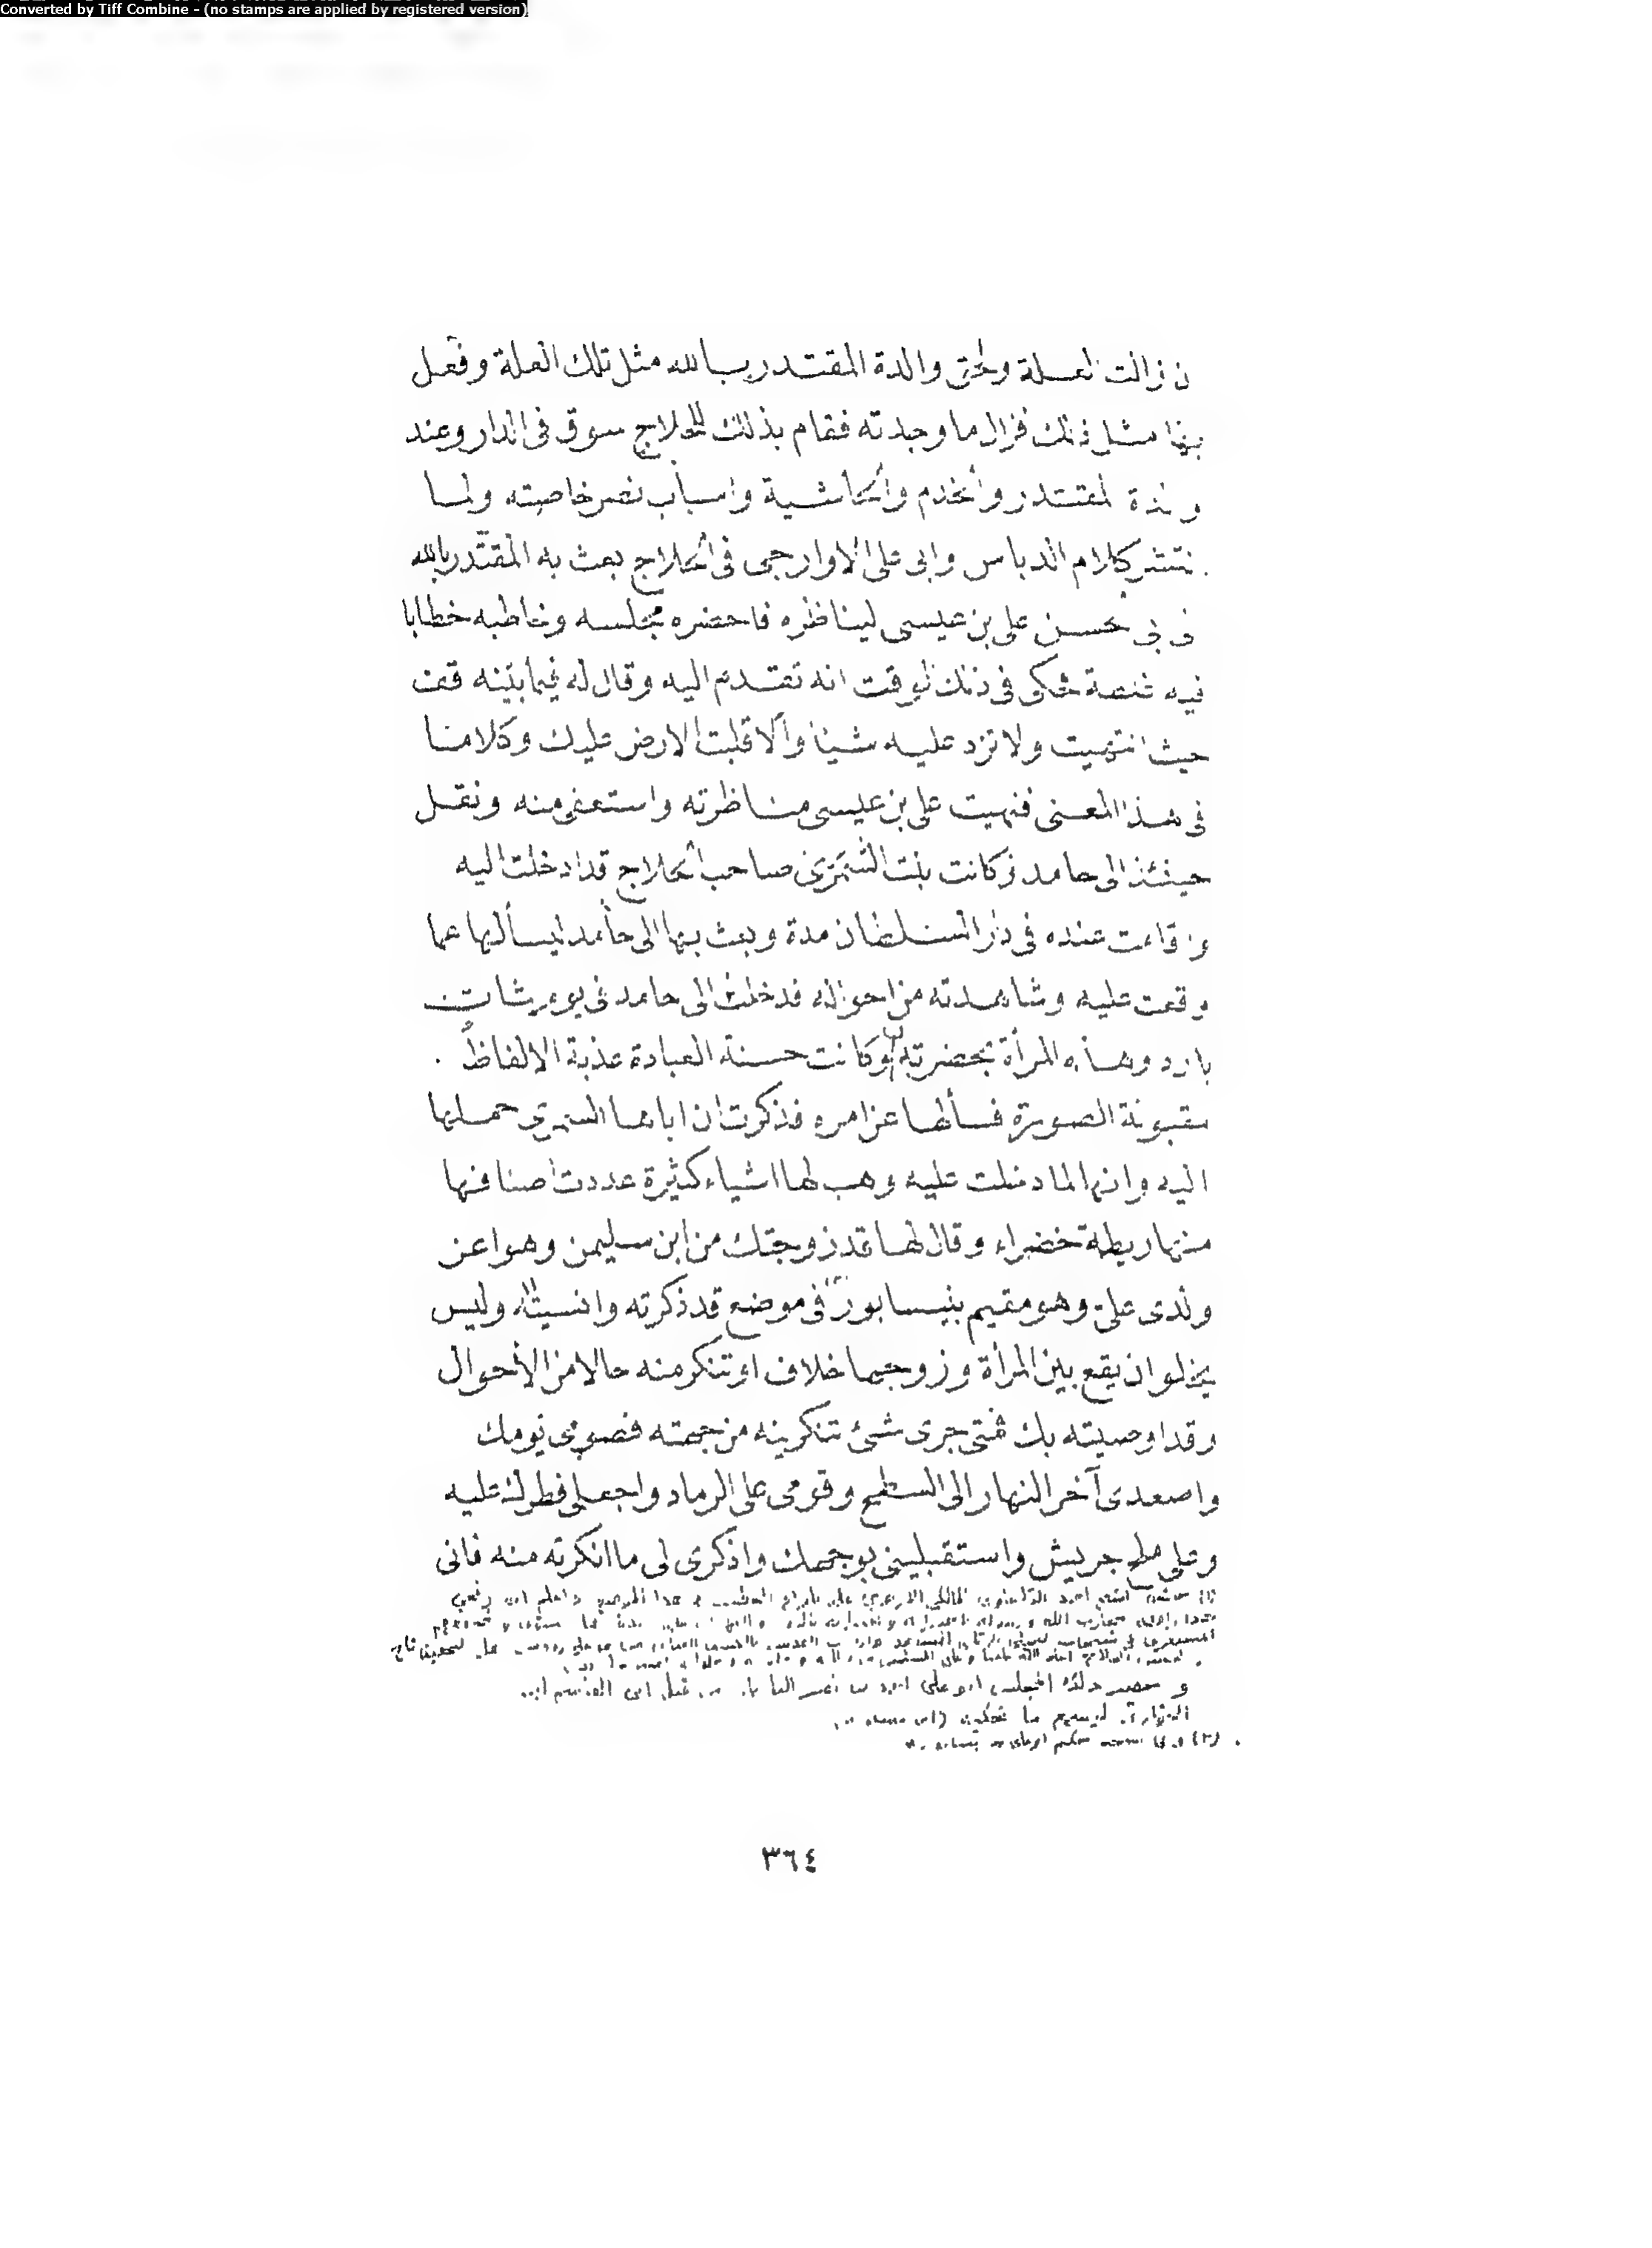 Converted by Tiff Combine - (no stamps are applied by registered version)
ن زالت العلة ولحق والدة المقتدر بالله مثل تلك العلة وفعل
بها مثل ذلك فزال ما وجدته فقام بذلك للحلاج سوق فى الدار وعند
والدة المقتدر والخدم والحاشية واسباب نصر خاصته ولما
انتشر كلام الدباس وابى على الاوارجى فى الحلاج بعث به المقتدر بالله
الى ابى الحسن على بن عيسى ليناظره فاحضره مجلسه وخاطبه خطابا
فيه غلظة فحكى فى ذلك الوقت انه تقدم اليه وقال له فيما بينه قف
حيث انتهيت ولا تزد عليه شيئا والا قلبت الارض عليك وكلاما
فى هذا المعنى فتهيب على بن عيسى مناظرته واستعفى منه ونقل
حينئذ الى حامد وكانت بنت السمرى صاحب الحلاج قد ادخلت اليه
واقامت عنده فى دار السلطان مدة وبعث بها الى حامد ليسألها عما
وقفت عليه وشاهدته من احواله فدخلت الى حامد فى يوم شات
بارد وهذه المرأة بحضرته وكانت حسنة العبادة عذبة الالفاظ
مقبولة الصورة فسألها عن امره فذكرت ان اباها السمرى حملها
اليه وانها لما دخلت عليه وهب لها اشياء كثيرة عددت اصنافها
منها ريطة خضراء وقال لها قد زوجتك من ابن سليمن وهو اعز
ولدى على وهو مقيم بنيسابور فى موضع قد ذكرته وانسيته وليس
يخلو ان يقع بين المرأة وزوجها خلاف او تنكر منه حالا من الأحوال
وقد اوصيته بك فمتى جرى شئ تنكرينه من جهته فصومى يومك
واصعدى آخر النهار الى السطح وقومى على الرماد واجعلى فطرك عليه
وعلى ملح جريش واستقبلينى بوجهك واذكرى لى ما انكرته منه فانى
وحضر المجلس ابو على احمد بن نصر
ليسمع ما تحكيه
٣٦٤